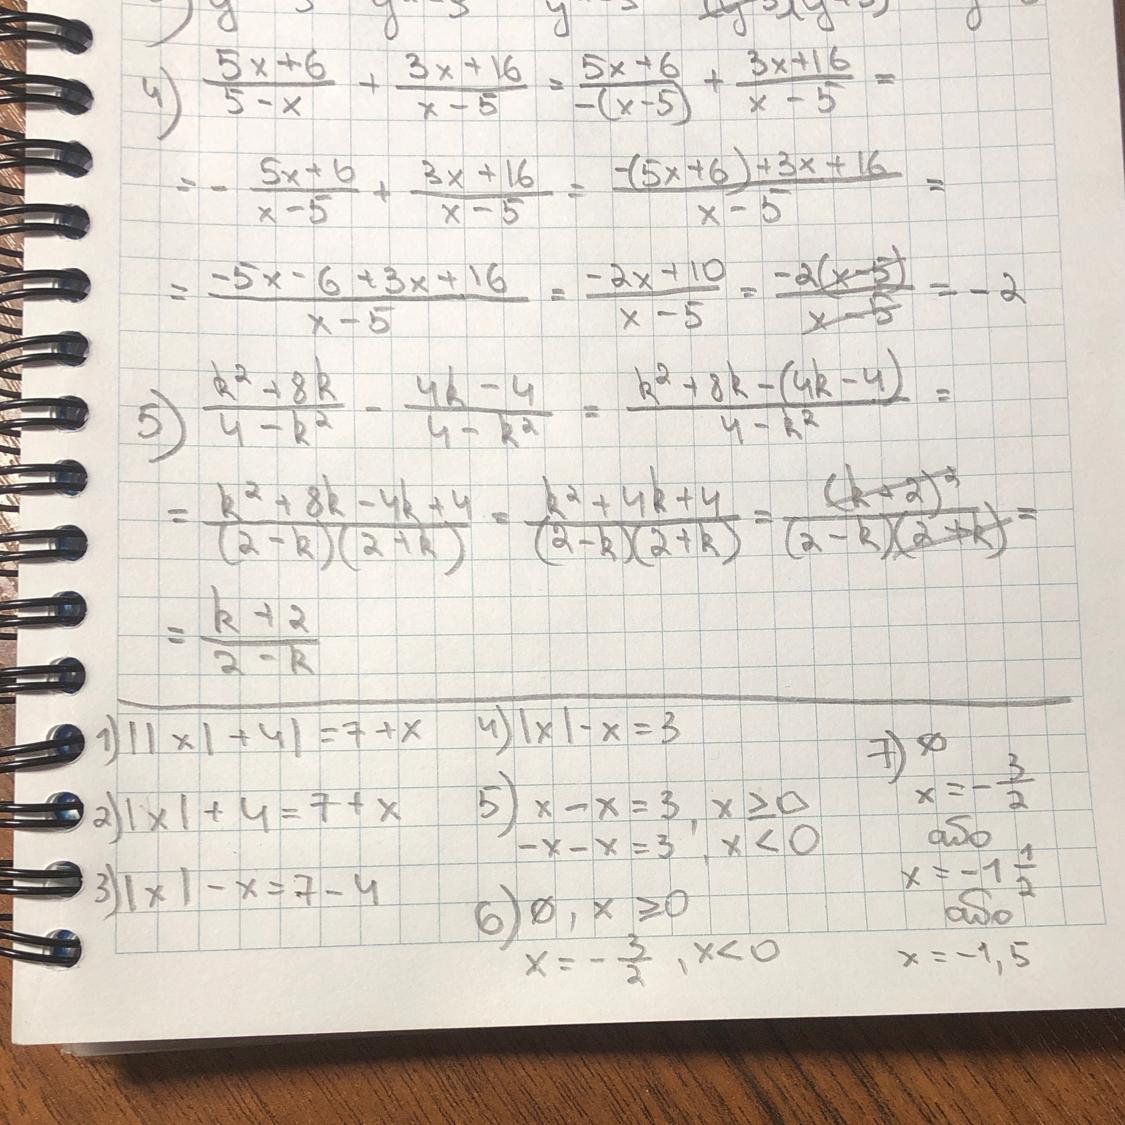 4) (5x+6)/(5-x) + (3x+16)/(x-5) = (5x+6)/(-(x-5)) + (3x+16)/(x-5) =
= - (5x+6)/(x-5) + (3x+16)/(x-5) = (-(5x+6)+3x+16)/(x-5) =
= (-5x-6+3x+16)/(x-5) = (-2x+10)/(x-5) = (-2(x-5))/(x-5) = -2
5) (k²+8k)/(4-k²) - (4k-4)/(4-k²) = (k²+8k-(4k-4))/(4-k²) =
= (k²+8k-4k+4)/((2-k)(2+k)) = (k²+4k+4)/((2-k)(2+k)) = (k+2)²/((2-k)(2+k)) =
= (k+2)/(2-k)
1) ||x|+4|=7+x
2) |x|+4=7+x
3) |x|-x=7-4
4) |x|-x=3
5) x-x=3, x≥0
-x-x=3, x<0
6) ∅, x≥0
x=-3/2, x<0
7) ∅
x=-3/2
або
x=-1 1/2
або
x=-1,5